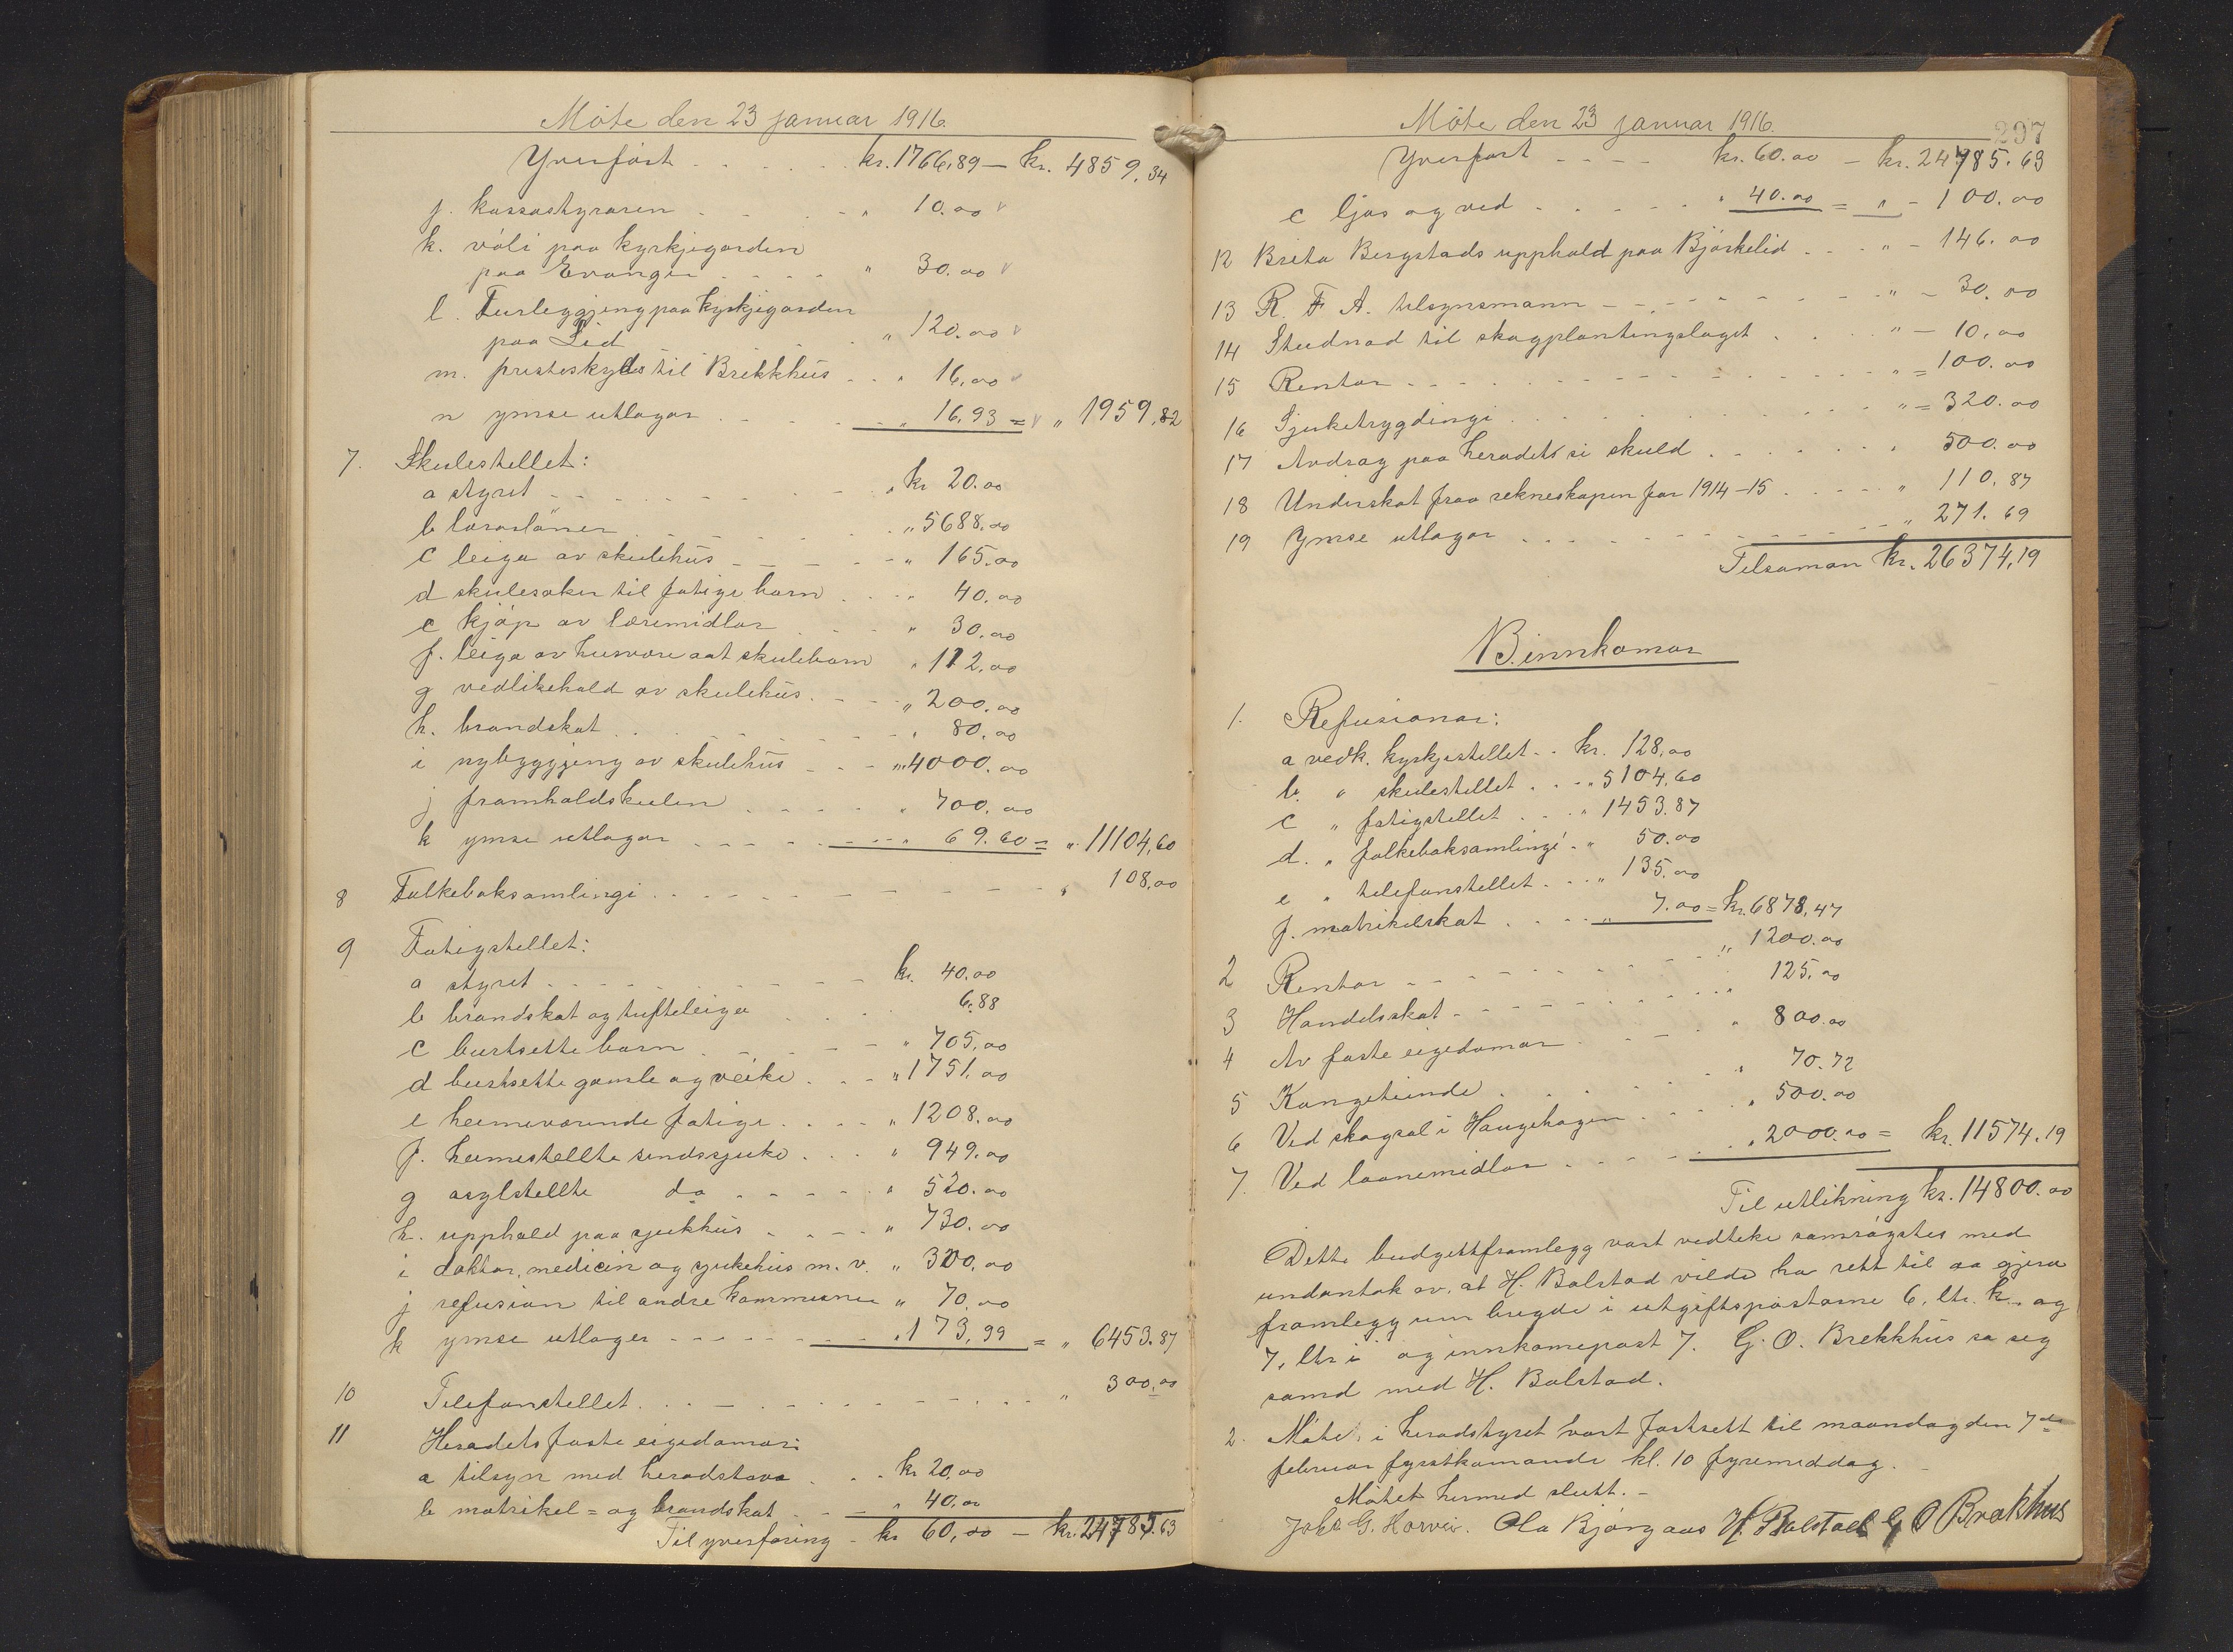 Möte den 23 januar 1916.
Yverfört - - - - . kr. 1766,89 — kr. 4859,34
j. kassastyraren . - . - " 10.00
k. völi paa kyrkjegarden
paa Evanger - . . . " 30.00
l. Turleggjing paa kyrkjegarden
paa Lid . . . " 120.00
m. presteskyds til Brekkhus . . " 16,00
n ymse utlagor . - . - " 16,93 = " 1959,82
7. Skulestellet:
a styret - - . - - - - " kr 20.00
b læraslöner - - - - - " 5688.00
c leiga av skulehus - - - - " 165.00
d skulesaker til fatige barn . - " 40.00
e kjöp av læremidlar . - - " 30.00
f. leiga av husvære aat skulebarn " 112,00
g vedlikehald av skulehus. - - " 200.00
h. brandskat . . - - - - " 80.00
i nybyggjing av skulehus - - - " 4000.00
j framhaldskulen - - - - " 700.00
k ymse utlagor - - - - " 69.60 = " 11104,60
8 Folkeboksamlingi . - - - - - - " 108,00
9 Fatigstellet:
a styret - - - - - - kr. 40.00
b brandskat og tufteleiga . . . 6.88
c burtsette barn . - - - " 705.00
d burtsette gamle og veike . - - " 1751.00
e heimeværende fatige . . . " 1208.00
f. heimestellte sindssjuke . . . " 949.00
g asylstellte do - - - - " 520.00
h. upphald paa sjukhus - - - " 730.00
i doktar, medicin og sjukehus m. v. " 300,00
j refusion til andre kommuner " 70,00
k ymse utlager - - - - " 173,99 = " 6453.87
10 Telefonstellet. . . - . - - - . . " 300,00
11 Heradets faste eigedomar:
a tilsyn med heradstova . . . kr 20,00
b matrikel= og brandskat . - - " 40,00
Til yverföring - kr 60,00 — kr. 24785.63
Möte den 23 januar 1916.
297
Yverfört - - - - kr. 60.00 — kr. 24785.63
c ljos og ved . - - - - " 40.00 = " - 100.00
12 Brita Bergstads upphald paa Björkelid . . . " - 146.00
13 R. F. A. tilsynsmann - - - - - - - " - 30.00
14 Studnad til skogplantingslaget . . . " - 10,00
15 Rentor - - . - - - - - - - - " = 100.00
16 Sjuketrygdingi . . . . . . . . " = 320.00
17 Avdrag paa heradets si skuld . . . . . " 500.00
18 Underskot fraa rekneskapen for 1914-15 . . - - " 110,87
19 Ymse utlagor . . . - - - - - - " 271.69
Tilsaman kr. 26374,19
B. innkomor
1. Refusionar:
a vedk. kyrkjestellet - . kr. 128,00
b. " skulestellet . . - " 5104,60
c " fatigstellet . . . " 1453.87
d. " folkeboksamlingi - " 50.00
e " telefonstellet . . . " 135.00
f. matrikelskat . . . - " 7.00 = kr. 6878,47
2 Rentor - - - - - - - - " 1200.00
3 Handelsskat - - - - - - - " 125.00
4 Av faste eigedomar . . - . - " 800.00
5 Kongetiende . . . . . " 70.72
6 Ved skogsal i Haugehagen . . . . " 500.00
7. Ved laanemidlar . - - - . . " 2000.00 = kr. 11574.19
Til utlikning kr. 14800.00
Dette budgettframlegg vart vedteke samrögstes med
undantak av, at H. Bolstad vilde ha rett til aa gjera
framlegg um bregde i utgiftspostarne 6. ltr. k. og
7, ltr i og innkomepost 7. G. O. Brekkhus sa seg
samd med H. Bolstad.
2. Möte i heradstyret vart fastsett til maandag den 7de
februar fyrstkomande kl. 10 fyremiddag. -
Mötet hermed slutt. -
Johs G. Horvei. Ola Bjørgaas H. Bolstad G O Brækhus